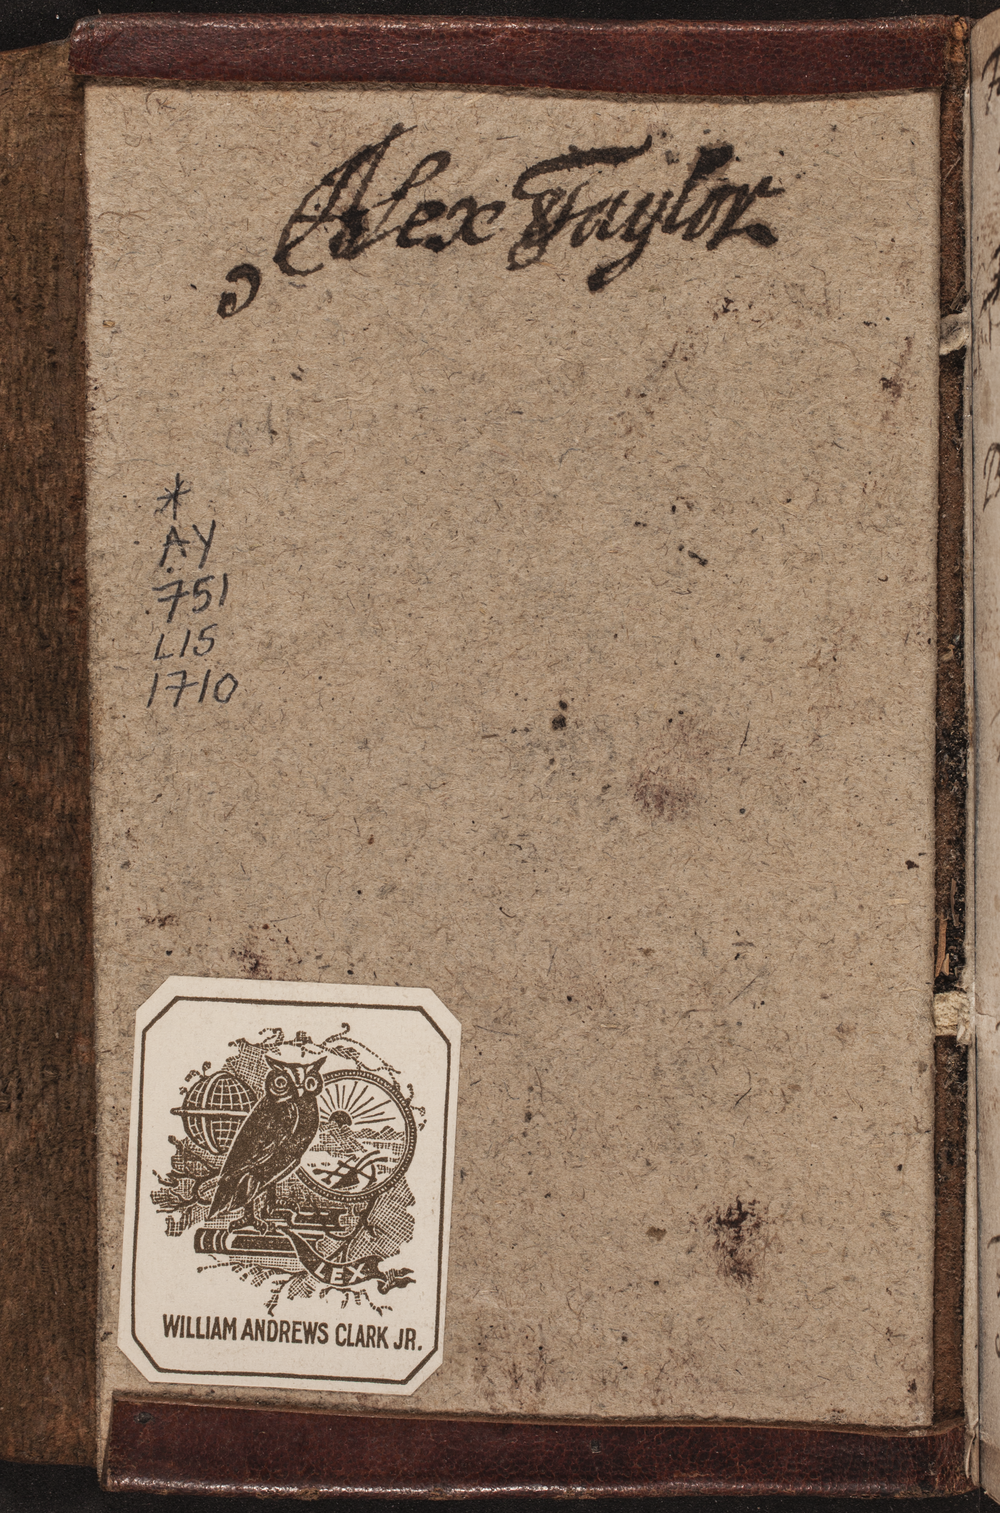 Alex Taylor
*
AY
751
L15
1710
LEX
WILLIAM ANDREWS CLARK JR.